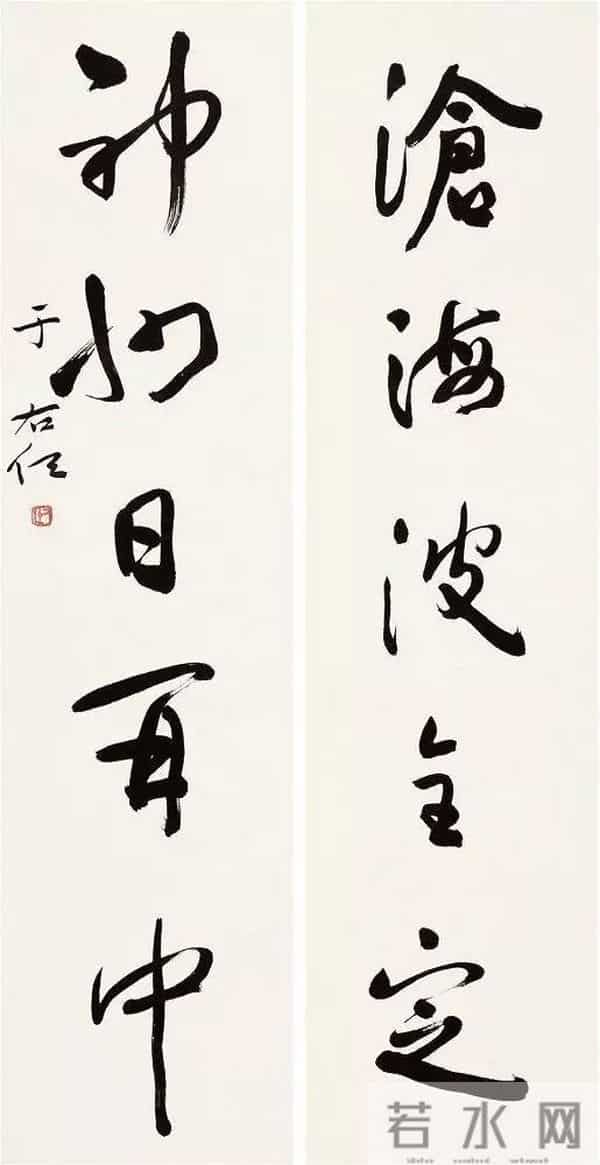 滄海波全定
神州日再中
于右任
若水网